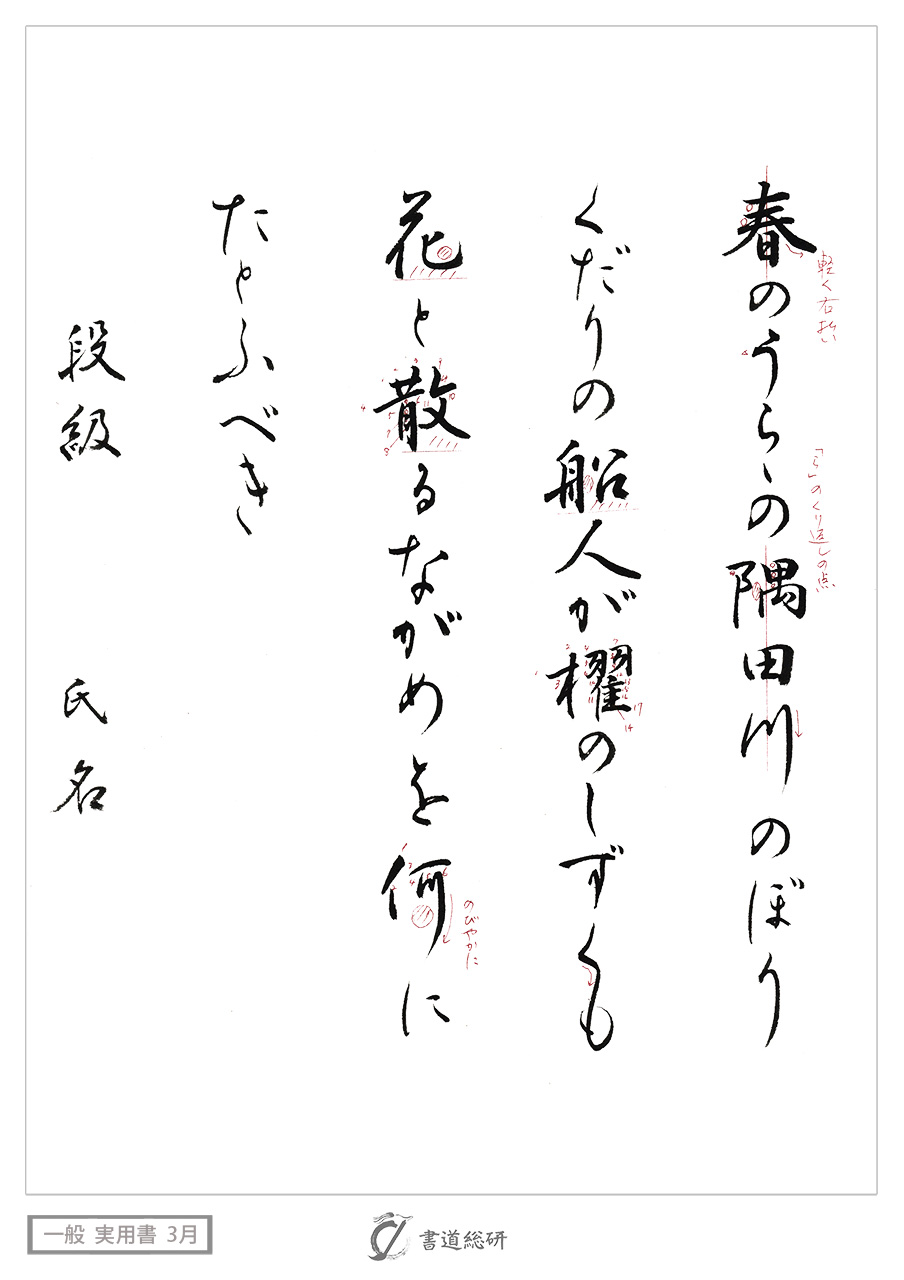 春のうらゝの隅田川のぼり
軽く右払い
「ら」のくり返しの点
くだりの船人が櫂のしずくも
花と散るながめを何に
のびやかに
たとふべき
段級 氏名
一般 実用書 3月
書道総研